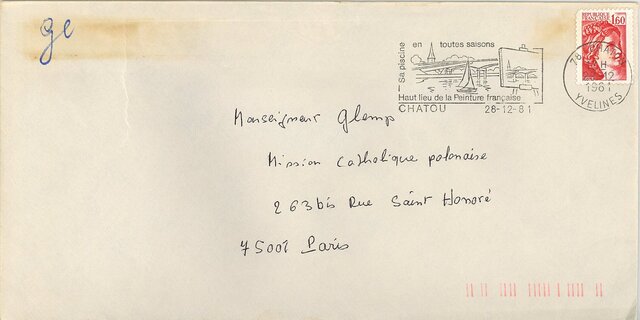 ge
REPUBLIQUE FRANÇAISE
1,60
Sa piscine en toutes saisons
Haut lieu de la Peinture française
CHATOU 28-12-81
78 CHATOU
H
12
1981
YVELINES
Monseigneur Glemp
Mission Catholique polonaise
263bis Rue Saint Honoré
75001 Paris